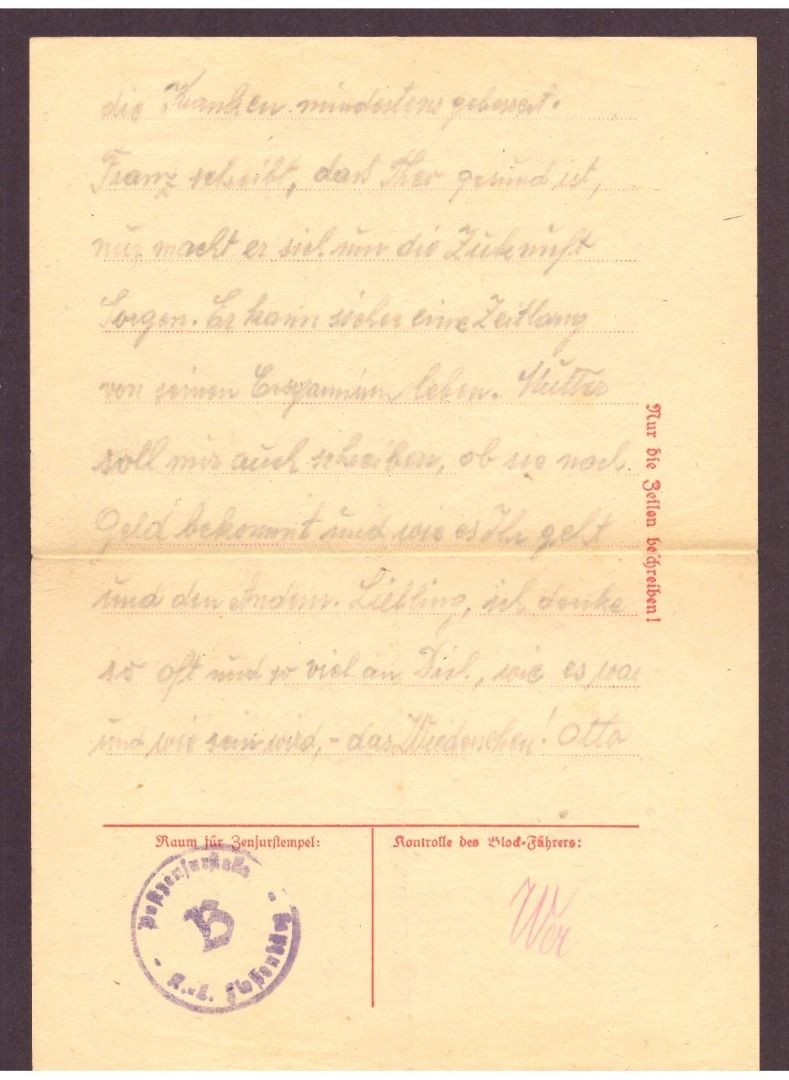 die Kranken mindestens gebessert.
Franz schreibt, dass Theo gesund ist,
nur macht er sich um die Zukunft
Sorgen. Er kann sicher eine Zeitlang
von seinen leben. Mutter
soll mir auch schreiben, ob sie noch
Geld bekommt und wie es Ihr geht
und den Andern. Liebling, ich denke
so oft und so viel an Dich, wie es war
und wie sein wird, - das Wiedersehen! Otto
Nur die Zeilen beschreiben!
Raum für Zensurstempel:
Kontrolle des Block-Führers:
Postzensurstelle
B
K.-L. Flossenbürg